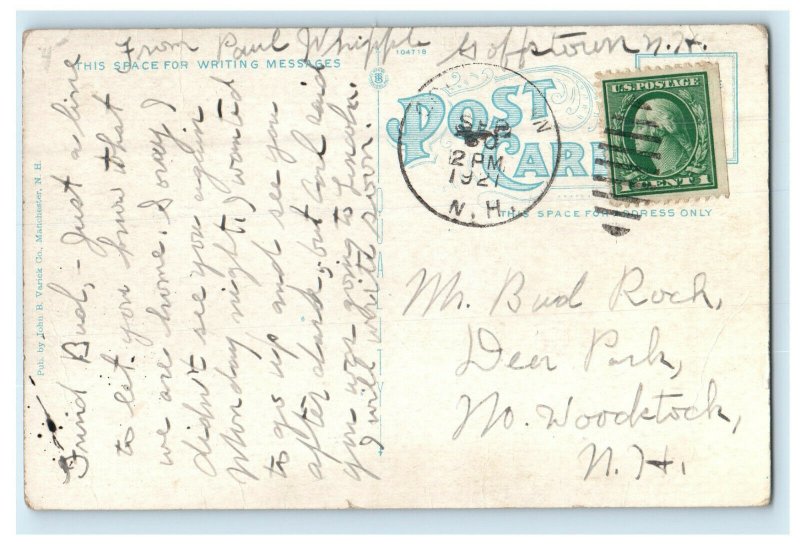 From Paul Whipple Goffstown N.H.
104718
THIS SPACE FOR WRITING MESSAGES
POST CARD
THIS SPACE FOR ADDRESS ONLY
Pub. by John B. Varick Co., Manchester, N. H.
Frind Bud, - Just a line
to let you know that
we are home. Sorry I
didn't see you again
Monday night, I wanted
to go up and see you
after dark, but Carl said
you was going to Lincoln.
I will write soon.
N
SEP
2 PM
1921
N. H.
U.S. POSTAGE
1 CENT 1
Mr. Bud Rock,
Deer Park,
No. Woodstock,
N. H.